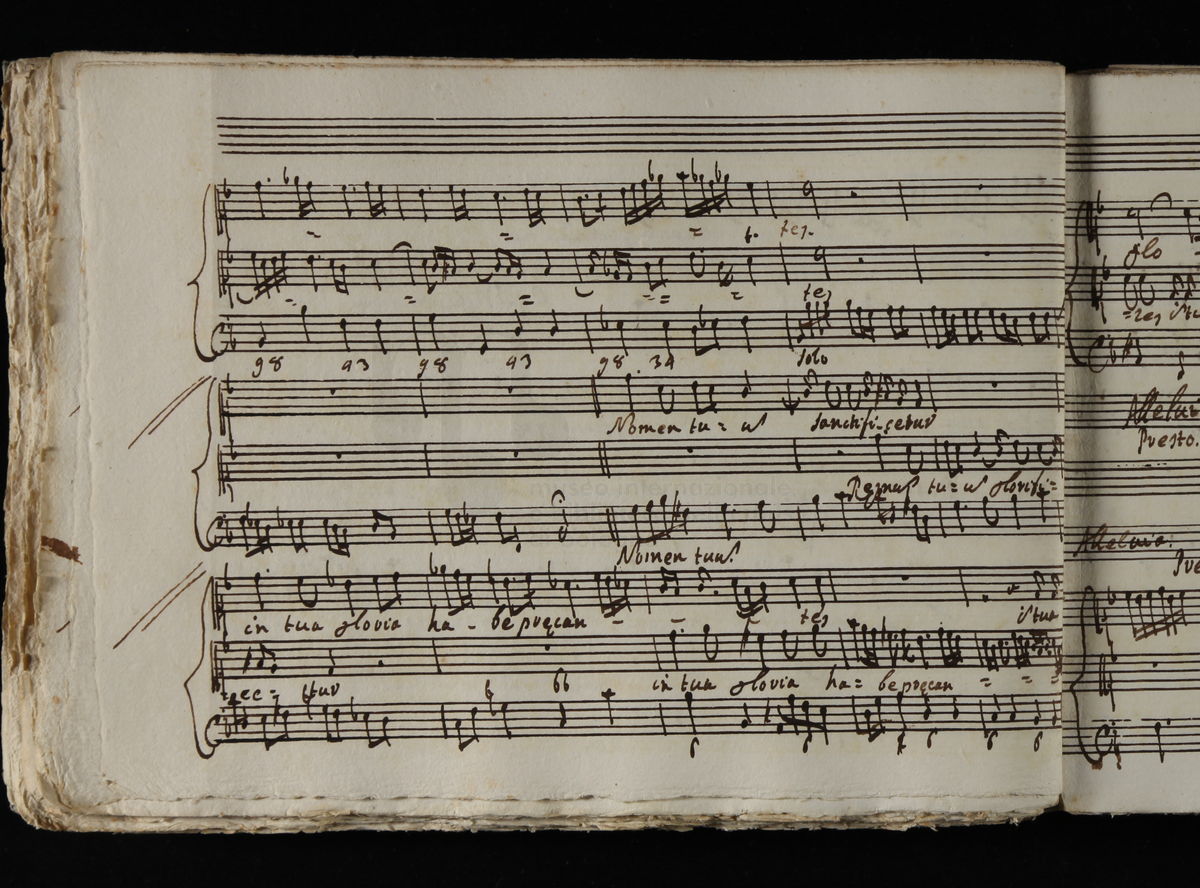 tes.
tes
98 43 98 43 98 34 solo
Nomen tu= ū sanctificetur
tu= ū glorifi=
Nomen tuū.
in tua gloria ha - be precan
tes
i'tua
in tua gloria ha= be precan
6 6 6 6 6
glo
Alleluia
Presto.
Alleluia.